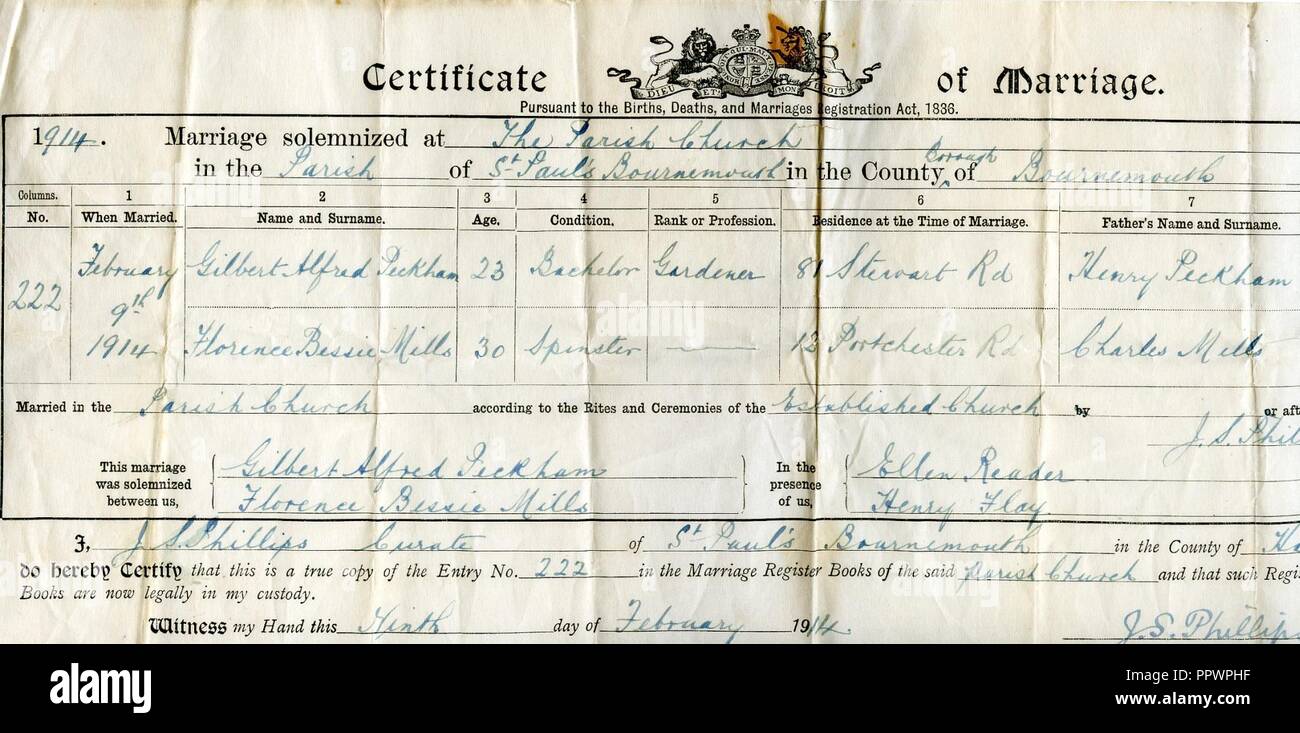 Certificate of Marriage.
DIEU ET MON DROIT
Pursuant to the Births, Deaths, and Marriages Registration Act, 1836.
1914. Marriage solemnized at The Parish Church
in the Parish of St Paul's Bournemouth in the County Borough of Bournemouth
Columns. 1 2 3 4 5 6 7
No. When Married. Name and Surname. Age. Condition. Rank or Profession. Residence at the Time of Marriage. Father's Name and Surname.
222 February 9th 1914 Gilbert Alfred Peckham 23 Bachelor Gardener 81 Stewart Rd Henry Peckham
Florence Bessie Mills 30 Spinster 12 Portchester Rd Charles Mills
Married in the Parish Church according to the Rites and Ceremonies of the Established Church by or aft
J. S. Phil
This marriage was solemnized between us, Gilbert Alfred Peckham In the presence of us, Ellen Reader
Florence Bessie Mills Henry Flay
I, J S Phillips Curate of St Paul's Bournemouth in the County of Ha
do hereby Certify that this is a true copy of the Entry No. 222 in the Marriage Register Books of the said Parish Church and that such Regi
Books are now legally in my custody.
Witness my Hand this Ninth day of February 1914 J. S. Phillips
alamy
Image ID: PPWPHF
www.alamy.com